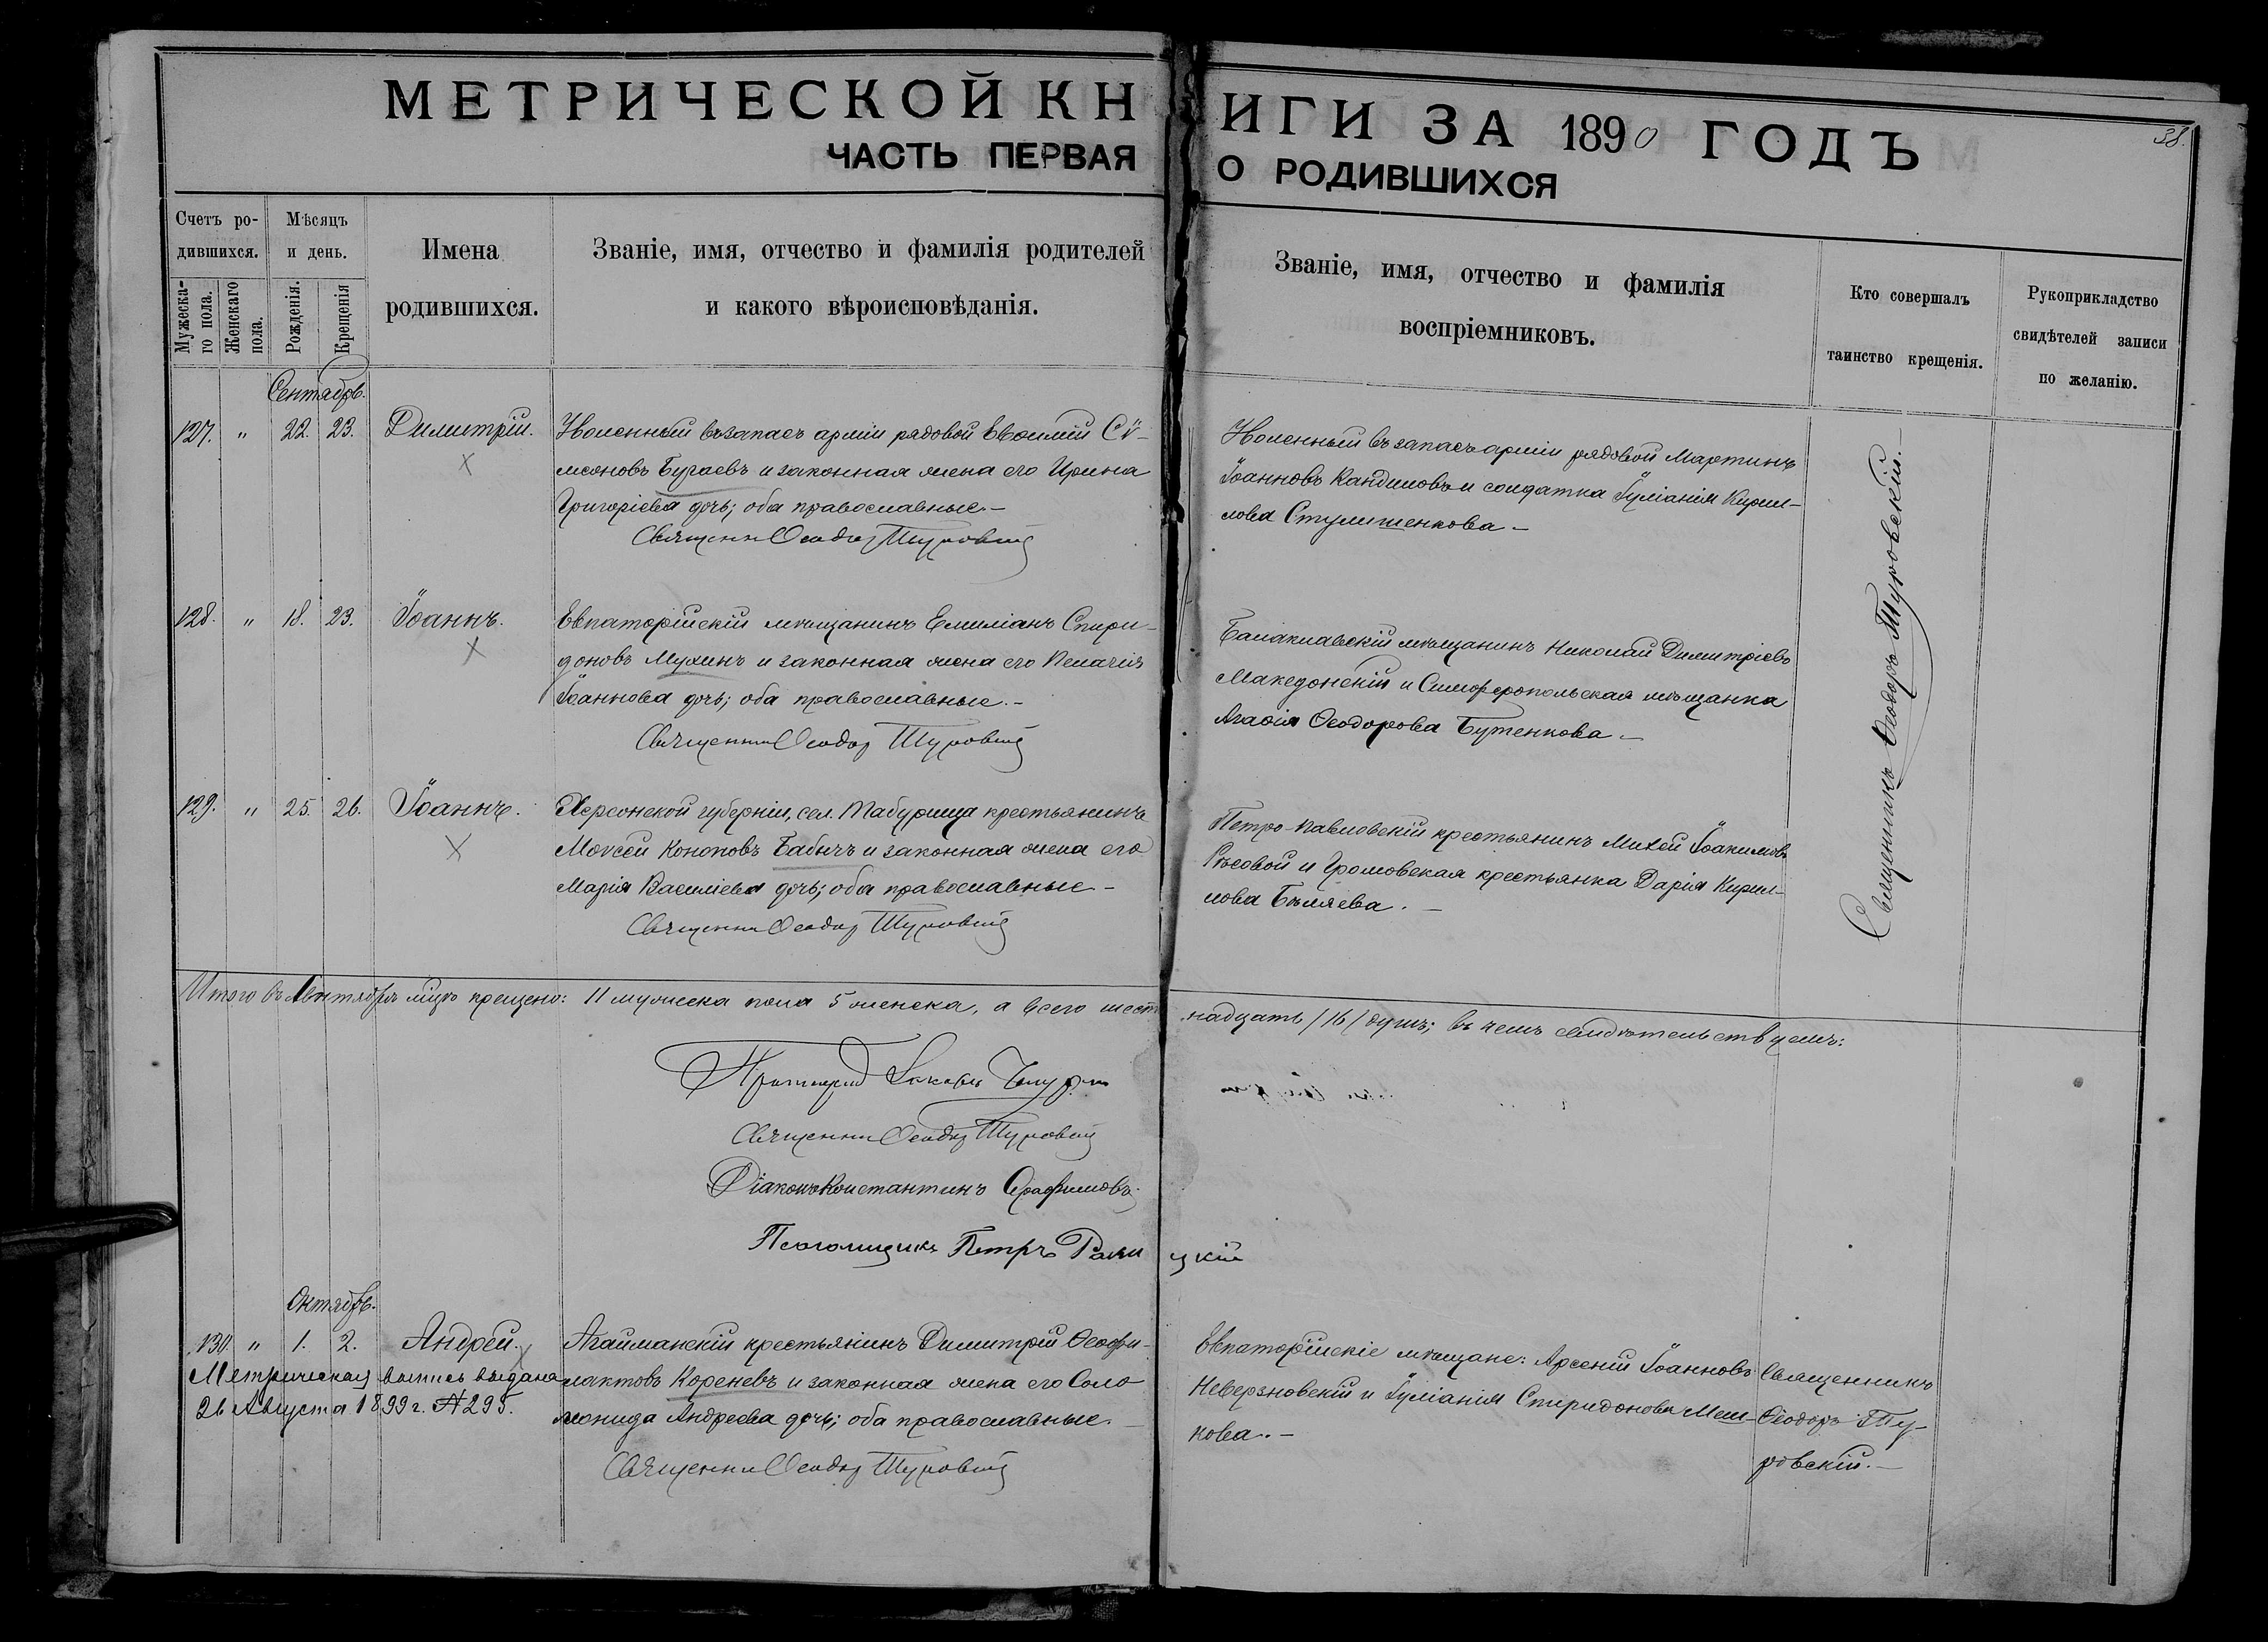 МЕТРИЧЕСКОЙ КНИГИ ЗА 1890 ГОДЪ
38.
ЧАСТЬ ПЕРВАЯ О РОДИВШИХСЯ
Счетъ ро-
дившихся.
Мужеска-
го пола.
Женскаго
пола.
Мѣсяцъ
и день.
Рожденія.
Крещенія
Имена
родившихся.
Званіе, имя, отчество и фамилія родителей
и какого вѣроисповѣданія.
Званіе, имя, отчество и фамилія
воспріемниковъ.
Кто совершалъ
таинство крещенія.
Рукоприкладство
свидѣтелей записи
по желанію.
Сентябрь.
127. " 22. 23. Димитрій.
въ запасъ арміи рядовой Евѳимій Сѵ-
меоновъ Бугаевъ и законная жена его Ирина
Григоріева дочь; оба православные.-
Священни Ѳеодор Туровскій
въ запасъ арміи рядовой Мартинъ
Іоанновъ Кандиловъ и солдатка Іуліанія Кирил-
лова Стулишенкова -
128. " 18. 23. Іоаннъ.
Евпаторійскій мѣщанинъ Емиліанъ Спири-
доновъ Мухинъ и законная жена его Пелагія
Іоаннова дочь; оба православные.-
Священни Ѳеодор Туровскій
Балаклавскій мѣщанинъ Николай Димитріевъ
Македонскій и Симферопольская мѣщанка
Агаѳія Ѳеодорова Бутенкова.-
129. " 25. 26. Іоаннъ.
Херсонской губерніи, сел. Табурища крестьянинъ
Моѵсей Кононовъ Бабичъ и законная жена его
Марія Василіева дочь; оба православные -
Священни Ѳеодор Туровскій
Петро-Павловскій крестьянинъ Михей Іоакимовъ
и Громовская крестьянка Дарія Кирил-
лова Бѣляева.-
Священникъ Ѳеодоръ Туровскій.-
Итого въ Сентябрѣ мцѣ крещено: 11 мужеска пола 5 женска, а всего шестнадцать /16/ душъ; въ чемъ свидѣтельствуемъ:
Протоіерей Іаковъ
Священни Ѳеодор Туровскій
Діаконъ Константинъ Серафимовъ
Псаломщикъ Петръ Ракицкій
Октябрь.
130. " 1. 2. Андрей.
Метрическая выпись выдана
26 Августа 1899 г. № 295.
Агайманскій крестьянинъ Димитрій Ѳеофи-
лактовъ Кореневъ и законная жена его Соло
монида Андреева дочь; оба православные.-
Священни Ѳеодор Туровскій
Евпаторійскіе мѣщане: Арсеній Іоанновъ
Неверзновскій и Іуліанія Спиридонова Меш-
кова.-
Священникъ
Ѳеодоръ Ту-
ровскій.-